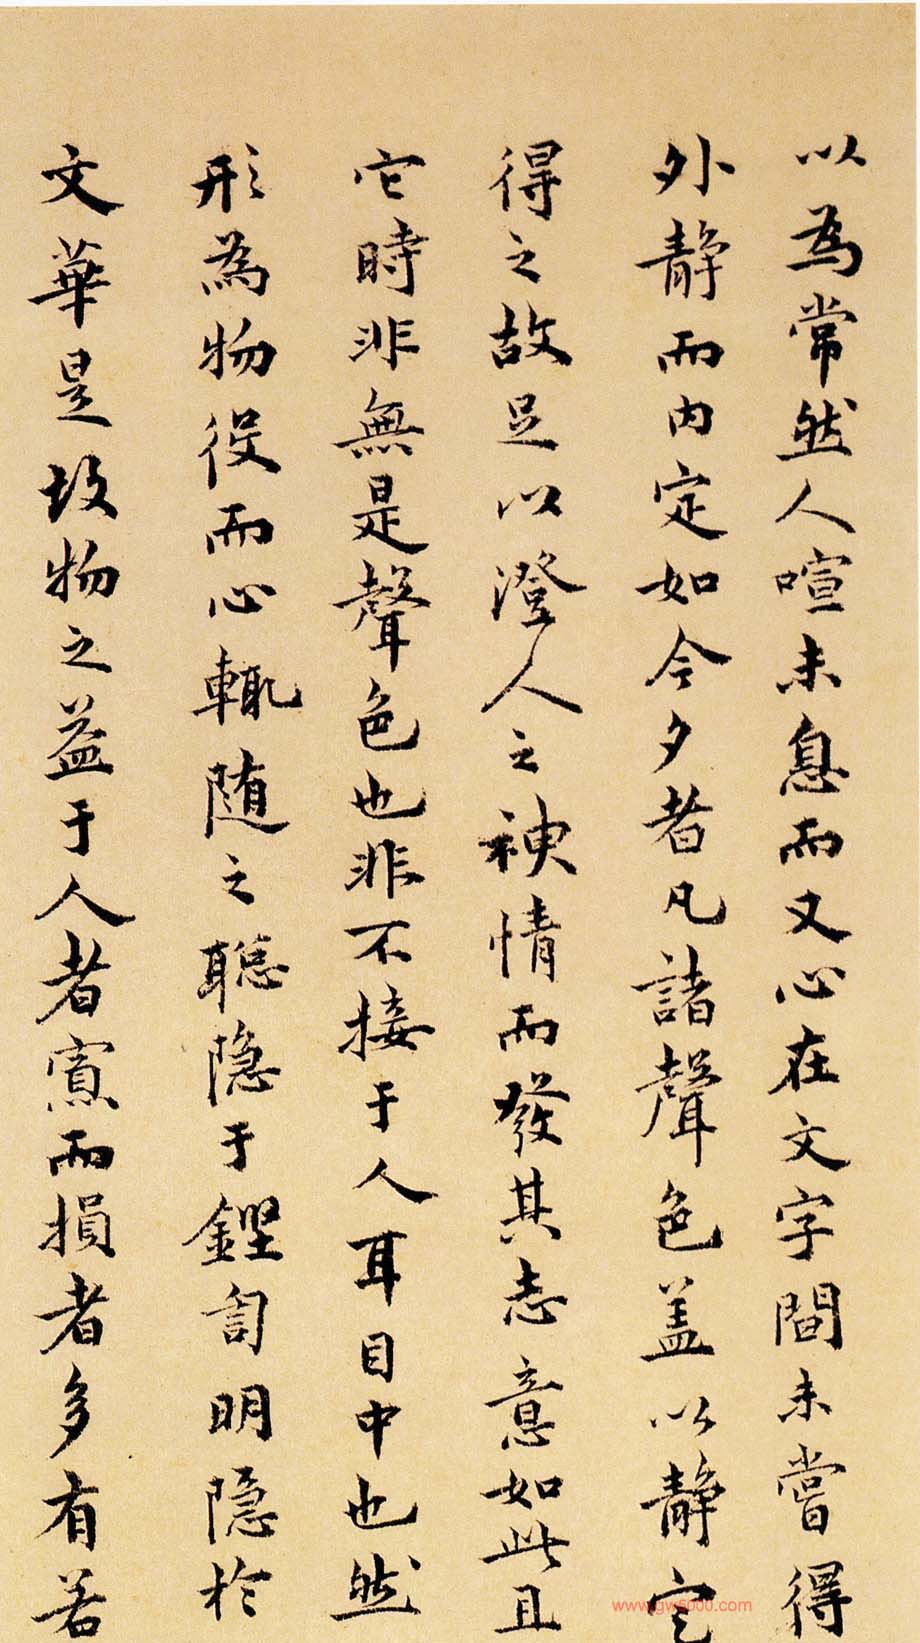 以為常然人喧未息而又心在文字間未嘗得
外静而内定如今夕者凡諸聲色盖以静定
得之故足以澄人之神情而發其志意如此且
它時非無是聲色也非不接于人耳目中也然
形為物役而心輒随之聰隐于鏗訇明隐於
文華是故物之益于人者寡而損者多有若
www.gw5000.com